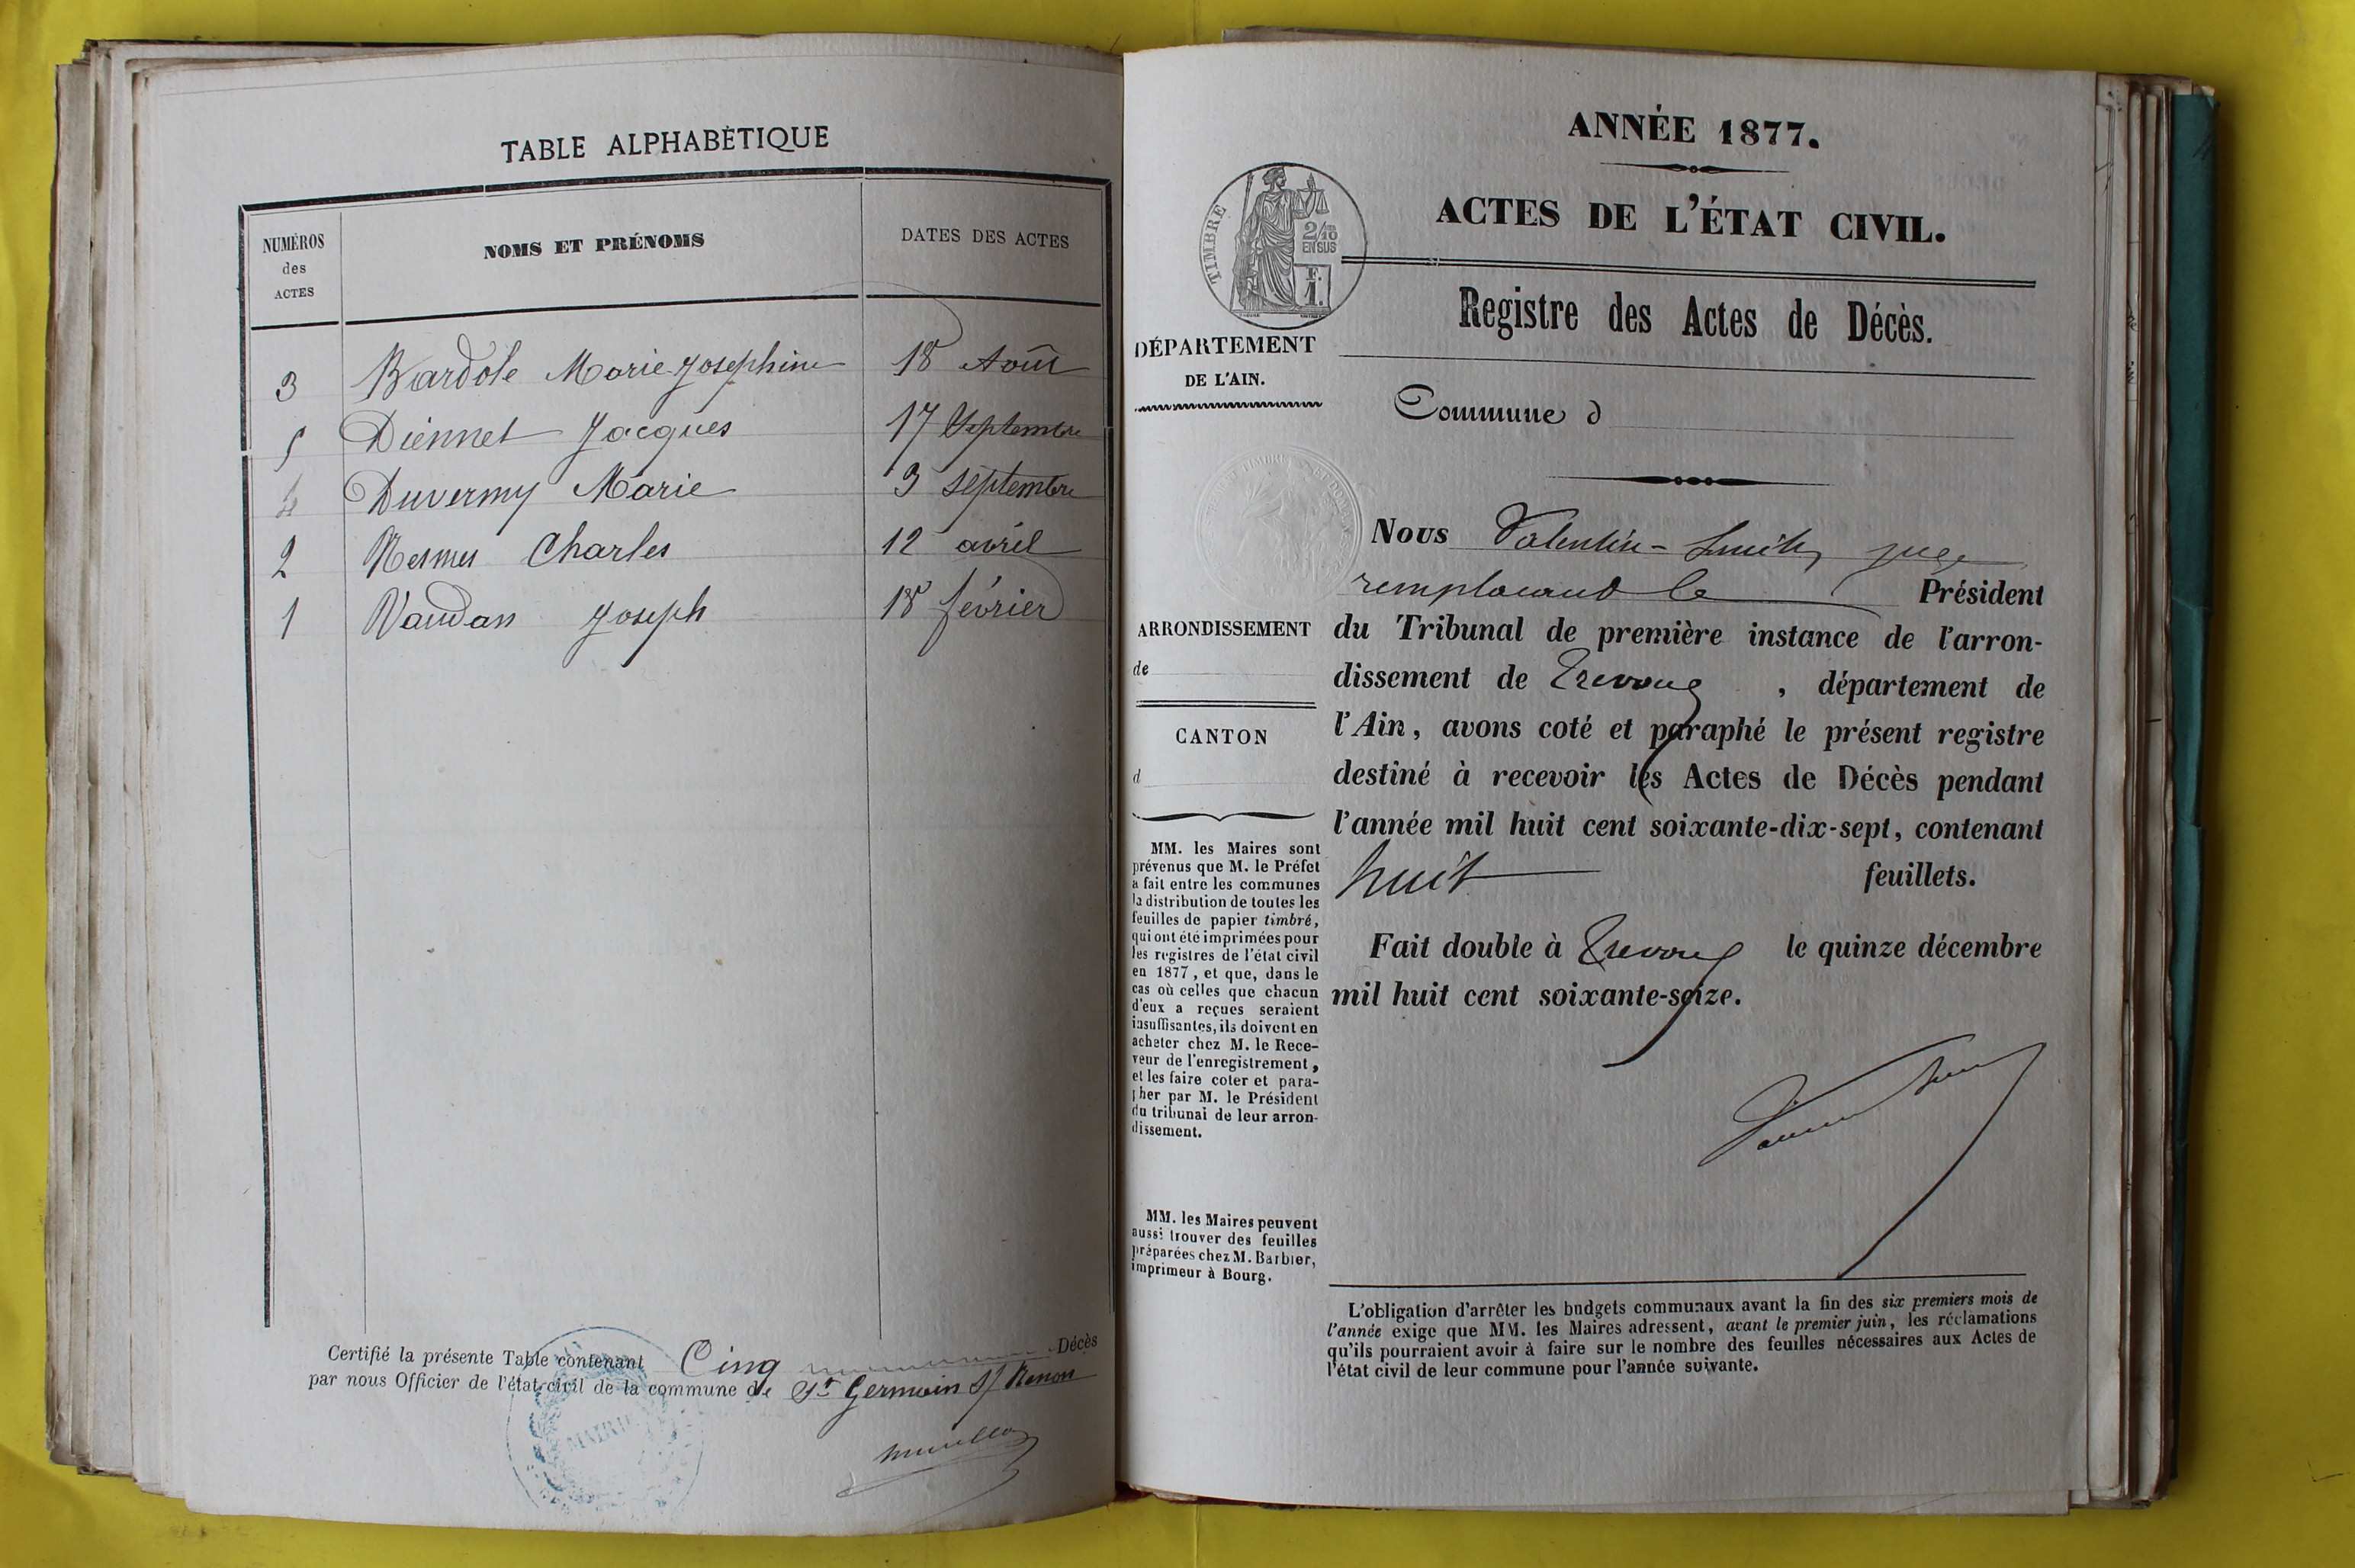 TABLE ALPHABÉTIQUE
NUMÉROS
des
ACTES
NOMS ET PRÉNOMS
DATES DES ACTES
3 Bardole Marie Josephine 18 Août
5 Diennet Jacques 17 Septembre
4 Duvermy Marie 3 septembre
2 Charles 12 avril
1 Vaudan Joseph 18 février
Certifié la présente Table contenant Cinq Décès
par nous Officier de l'état civil de la commune de St Germain s/ Renon
MAIRIE
ANNÉE 1877.
ACTES DE L'ÉTAT CIVIL.
TIMBRE
2/10
EN SUS
F.
1.
Registre des Actes de Décès.
DÉPARTEMENT
DE L'AIN.
Commune d
Nous Valentin-Smith, juge
remplacant le Président
ARRONDISSEMENT
de
CANTON
d
du Tribunal de première instance de l'arron-
dissement de Trevoux , département de
l'Ain, avons coté et paraphé le présent registre
destiné à recevoir les Actes de Décès pendant
l'année mil huit cent soixante-dix-sept, contenant
huit feuillets.
Fait double à Trevoux le quinze décembre
mil huit cent soixante-seize.
MM. les Maires sont
prévenus que M. le Préfet
a fait entre les communes
la distribution de toutes les
feuilles de papier timbré,
qui ont été imprimées pour
les registres de l'état civil
en 1877, et que, dans le
cas où celles que chacun
d'eux a reçues seraient
insuffisantes, ils doivent en
acheter chez M. le Rece-
veur de l'enregistrement,
et les faire coter et para-
pher par M. le Président
du tribunal de leur arron-
dissement.
MM. les Maires peuvent
aussi trouver des feuilles
préparées chez M. Barbier,
imprimeur à Bourg.
L'obligation d'arrêter les budgets communaux avant la fin des six premiers mois de
l'année exige que MM. les Maires adressent, avant le premier juin, les réclamations
qu'ils pourraient avoir à faire sur le nombre des feuilles nécessaires aux Actes de
l'état civil de leur commune pour l'année suivante.